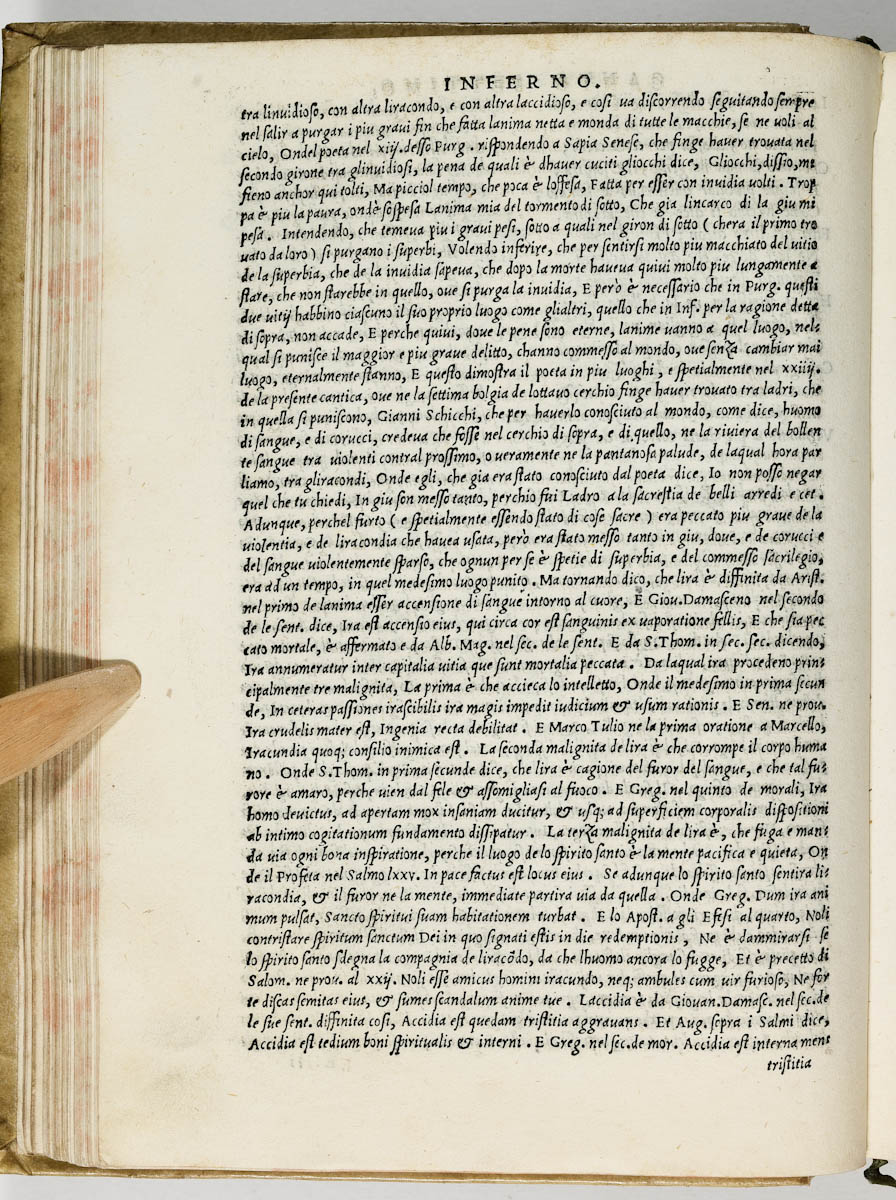 INFERNO.
tra linuidioso, con altra liracondo, e con altra laccidioso, e cosi ua discorrendo seguitando sempre
nel salir a purgar i piu graui fin che fatta lanima netta e monda di tutte le macchie, se ne uoli al
cielo, Ondel poeta nel xiij. desso Purg. rispondendo a Sapia Senese, che finge hauer trouata nel
secondo girone tra glinuidiosi, la pena de quali è dhauer cuciti gliocchi dice, Gliocchi, dissio, mi
fieno anchor qui tolti, Ma picciol tempo, che poca è loffesa, Fatta per esser con inuidia uolti. Trop
pa è piu la paura, ondè sospesa Lanima mia del tormento di sotto, Che gia lincarco di la giu mi
pesa. Intendendo, che temeua piu i graui pesi, sotto a quali nel giron di sotto ( chera il primo tro
uato da loro ) si purgano i superbi, Volendo inferire, che per sentirsi molto piu macchiato del uitio
de la superbia, che de la inuidia sapeua, che dopo la morte haueua quiui molto piu lungamente a
stare, che non starebbe in quello, oue si purga la inuidia, E però è necessario che in Purg. questi
due uitij habbino ciascuno il suo proprio luogo come glialtri, quello che in Inf. per la ragione detta
di sopra, non accade, E perche quiui, doue le pene sono eterne, lanime uanno a quel luogo, nel-
qual si punisce il maggior e piu graue delitto, channo commesso al mondo, oue senza cambiar mai
luogo, eternalmente stanno, E questo dimostra il poeta in piu luoghi, e spetialmente nel xxiiij.
de la presente cantica, oue ne la settima bolgia de lottauo cerchio finge hauer trouato tra ladri, che
in quella si puniscono, Gianni Schicchi, che per hauerlo conosciuto al mondo, come dice, huomo
di sangue, e di corucci, credeua che fosse nel cerchio di sopra, e di quello, ne la riuiera del bollen
te sangue tra uiolenti contral prossimo, o ueramente ne la pantanosa palude, de laqual hora par
liamo, tra gliracondi, Onde egli, che gia era stato conosciuto dal poeta dice, Io non posso negar
quel che tu chiedi, In giu son messo tanto, perchio fui Ladro a la sacrestia de belli arredi e cet.
Adunque, perchel furto ( e spetialmente essendo stato di cose sacre ) era peccato piu graue de la
uiolentia, e de liracondia che hauea usata, però era stato messo tanto in giu, doue, e de corucci e
del sangue uiolentemente sparso, che ognun per se è spetie di superbia, e del commesso sacrilegio,
era ad un tempo, in quel medesimo luogo punito. Ma tornando dico, che lira è diffinita da Arist.
nel primo de lanima esser accensione di sangue intorno al cuore, E Giou. Damasceno nel secondo
de le sent. dice, Ira est accensio eius, qui circa cor est sanguinis ex uaporatione fellis, E che sia pec
cato mortale, è affermato e da Alb. Mag. nel sec. de le sent. E da S. Thom. in sec. sec. dicendo,
Ira annumeratur inter capitalia uitia que sunt mortalia peccata. Da laqual ira procedeno prin-
cipalmente tre malignita, La prima è che accieca lo intelletto, Onde il medesimo in prima secun
de, In ceteras passiones irascibilis ira magis impedit iudicium & usum rationis. E Sen. ne prou.
Ira crudelis mater est, Ingenia recta debilitat. E Marco Tulio ne la prima oratione a Marcello,
Iracundia quoq; consilio inimica est. La seconda malignita de lira è che corrompe il corpo huma
no. Onde S. Thom. in prima secunde dice, che lira è cagione del furor del sangue, e che tal fu-
rore è amaro, perche uien dal fele & assomigliasi al fuoco. E Greg. nel quinto de morali, Ira
homo deuictus, ad apertam mox insaniam ducitur, & usq; ad superficiem corporalis dispositioni
ab intimo cogitationum fundamento dissipatur. La terza malignita de lira è, che fuga e man-
da uia ogni bona inspiratione, perche il luogo de lo spirito santo è la mente pacifica e quieta, On
de il Profeta nel Salmo lxxv. In pace factus est locus eius. Se adunque lo spirito santo sentira li-
racondia, & il furor ne la mente, immediate partira uia da quella. Onde Greg. Dum ira ani
mum pulsat, Sancto spiritui suam habitationem turbat. E lo Apost. a gli Efesi al quarto, Noli
contristare spiritum sanctum Dei in quo signati estis in die redemptionis, Ne è dammirarsi se
lo spirito santo sdegna la compagnia de liracōdo, da che lhuomo ancora lo fugge, Et è precetto di
Salom. ne prou. al xxij. Noli esse amicus homini iracundo, neq; ambules cum uir furioso, Ne for
te discas semitas eius, & sumes scandalum anime tue. Laccidia è da Giouan. Damasc. nel sec. de
le sue sent. diffinita cosi, Accidia est quedam tristitia aggrauans. Et Aug. sopra i Salmi dice,
Accidia est tedium boni spiritualis & interni. E Greg. nel sec. de mor. Accidia est interna ment
tristitia